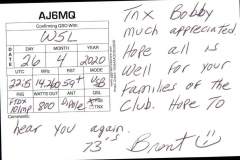 AJ6MQ
Confirming QSO With:
W5L
DATE
DAY
MONTH
YEAR
26
4
2020
UTC
MHz
RST
MODE
2215
14.260
59+
USB
RIG
WATTS OUT
ANT
QSL
FTDX
101mp
800
Dipole
PSE
TNX
Comments:
Tnx Bobby
much appreciated
Hope all is
Well for your
Families of the
Club. Hope To
hear you again.
73's
Brent